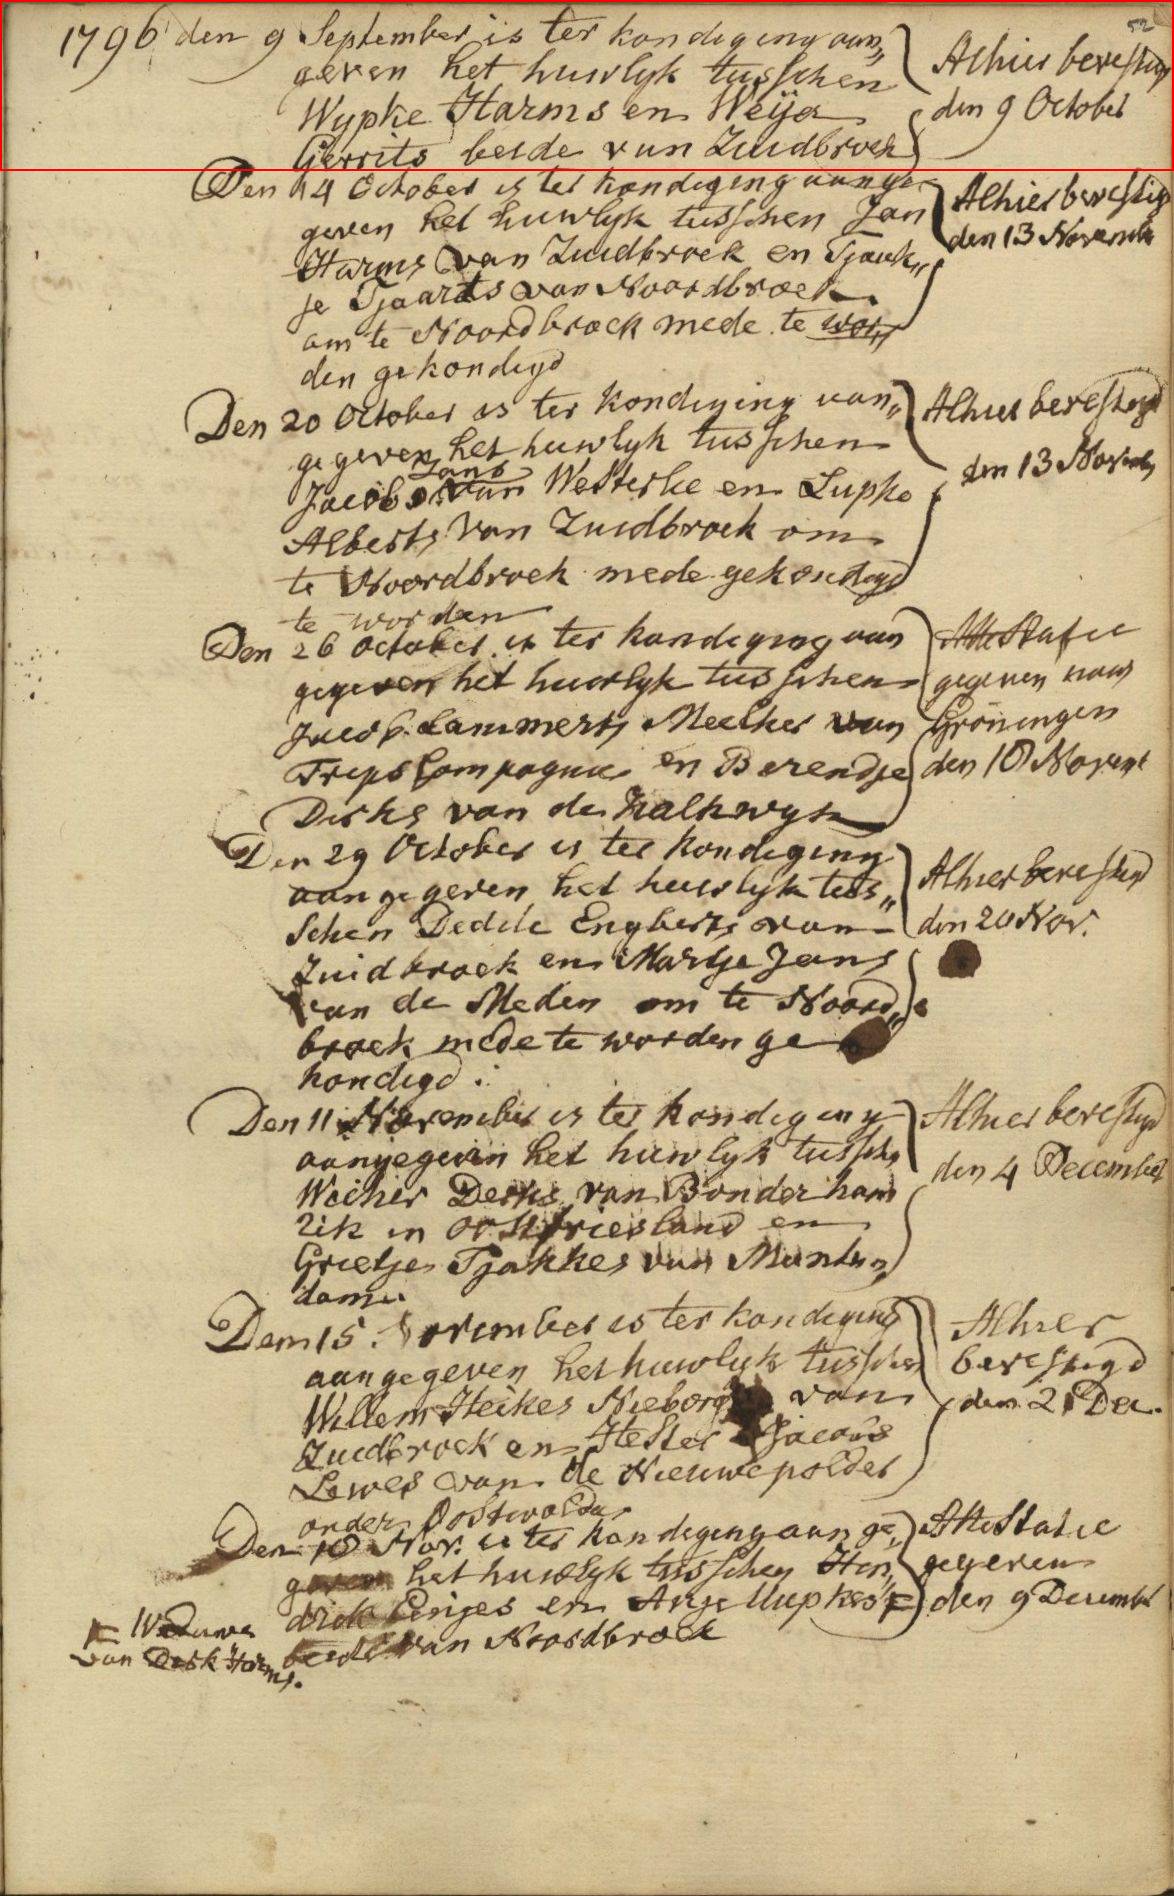 52
1796 den 9 September is ter kondiging aan„
geven het huwlyk tusschen
Wypke Harms en Weija
Gerrits beide van Zuidbroek
Alhier bevestigd
den 9 October
Den 14 October is ter kondiging aange„
geven het huwlyk tusschen Jan
Harms van Zuidbroek en Tjauk„
je Tjaarts van Noordbroek
om te Noordbroek mede te wor„
den gekondigd
Alhier bevestig
den 13 Novemb
Den 20 October is ter kondiging aan„
gegeven het huwlyk tusschen
Jans
Jacob van Westerlee en Lupke
Alberts van Zuidbroek om
te Noordbroek mede gekondigd
te worden
Alhier bevestigd
den 13 Novemb
Den 26 October is ter kondiging aan
gegeven het huwlyk tusschen
Jacob Lammerts Meelker van
Trips Compagnie en Berendje
Derks van de Kalkwyk
Attestatie
gegeven naar
Groningen
den 18 Novem
Den 29 October is ter kondiging
aangegeven het huwlyk tus„
schen Dedde Engberts van
Zuidbroek en Martje Jans
van de Meden om te Noord„
broek mede te worden ge
kondigd.
Alhier bevestigd
den 20 Nov.
Den 11 November is ter kondiging
aangegeven het huwlyk tussche
Derks van Bonderham
rik in Oostfriesland en
Grietje Tjakkes van Munten„
dam.
Alhier bevestigd
den 4 December
Den 15 November is ter kondiging
aangegeven het huwlyk tusschen
Willem Heikes Nieborg van
Zuidbroek en Hester Jacobs
Lewes van de Nieuwe polder
onder Oostwolda
Alhier
bevestigd
den 21 Dec.
Den 18 Nov. is ter kondiging aan ge„
geven het huwlyk tusschen Hen„
drik Eenjes en Antje Uupkes F
beide van Noordbroek
Attestatie
gegeven
den 9 Decemb
F Weduwe
van Derk Harms.